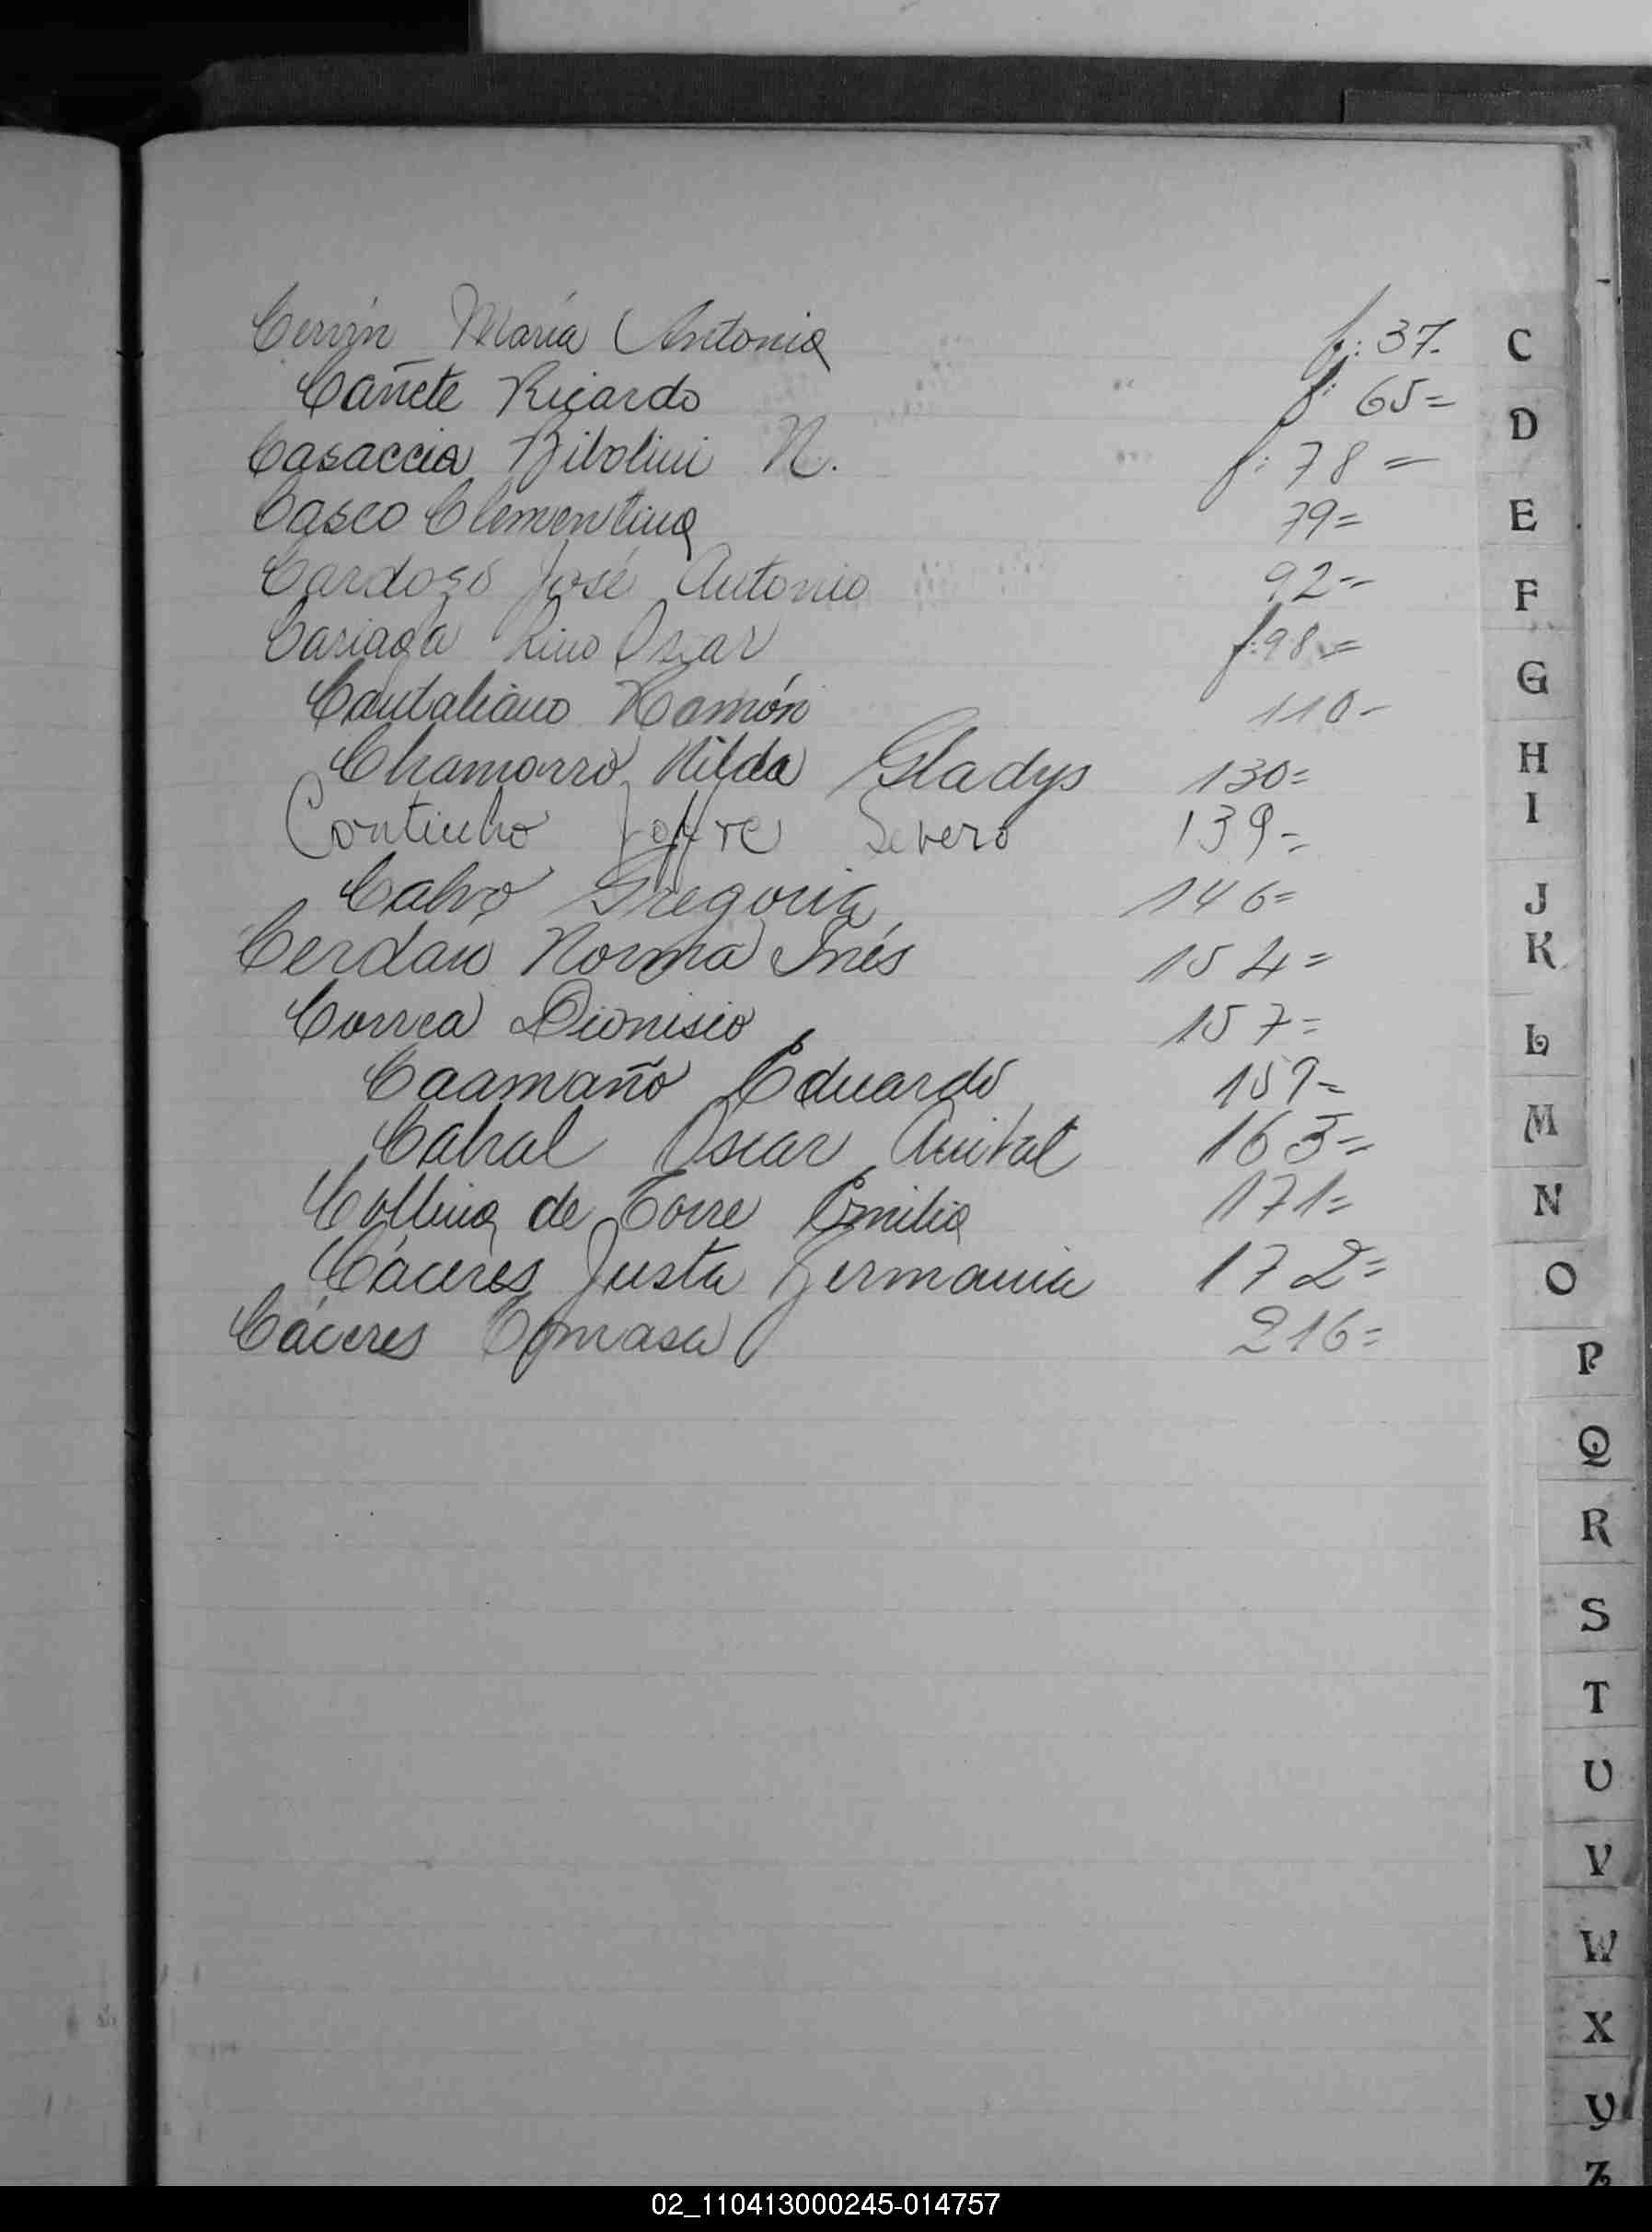 Cervín María Antonia f: 37.
Cañete Ricardo f: 65=
Casaccia Bibolini N. f: 78=
Casco Clementina 79=
Cardozo José Antonio 92=
Cariaga Lino Oscar f: 98=
Cantaliano Ramón 110-
Chamorro Nilda Gladys 130=
Continho Joffre Severo 139=
Calvo Gregoria 146=
Cerdan Norma Inés 154=
Correa Dionisio 157=
Caamaño Eduardo 159=
Cabral Oscar Anibal 163=
Collina de Torre Emilia 171=
Cáceres Justa Germania 172=
Cáceres Tomasa 216=
C
D
E
F
G
H
I
J
K
L
M
N
O
P
Q
R
S
T
U
V
W
X
Y
Z
02_110413000245-014757